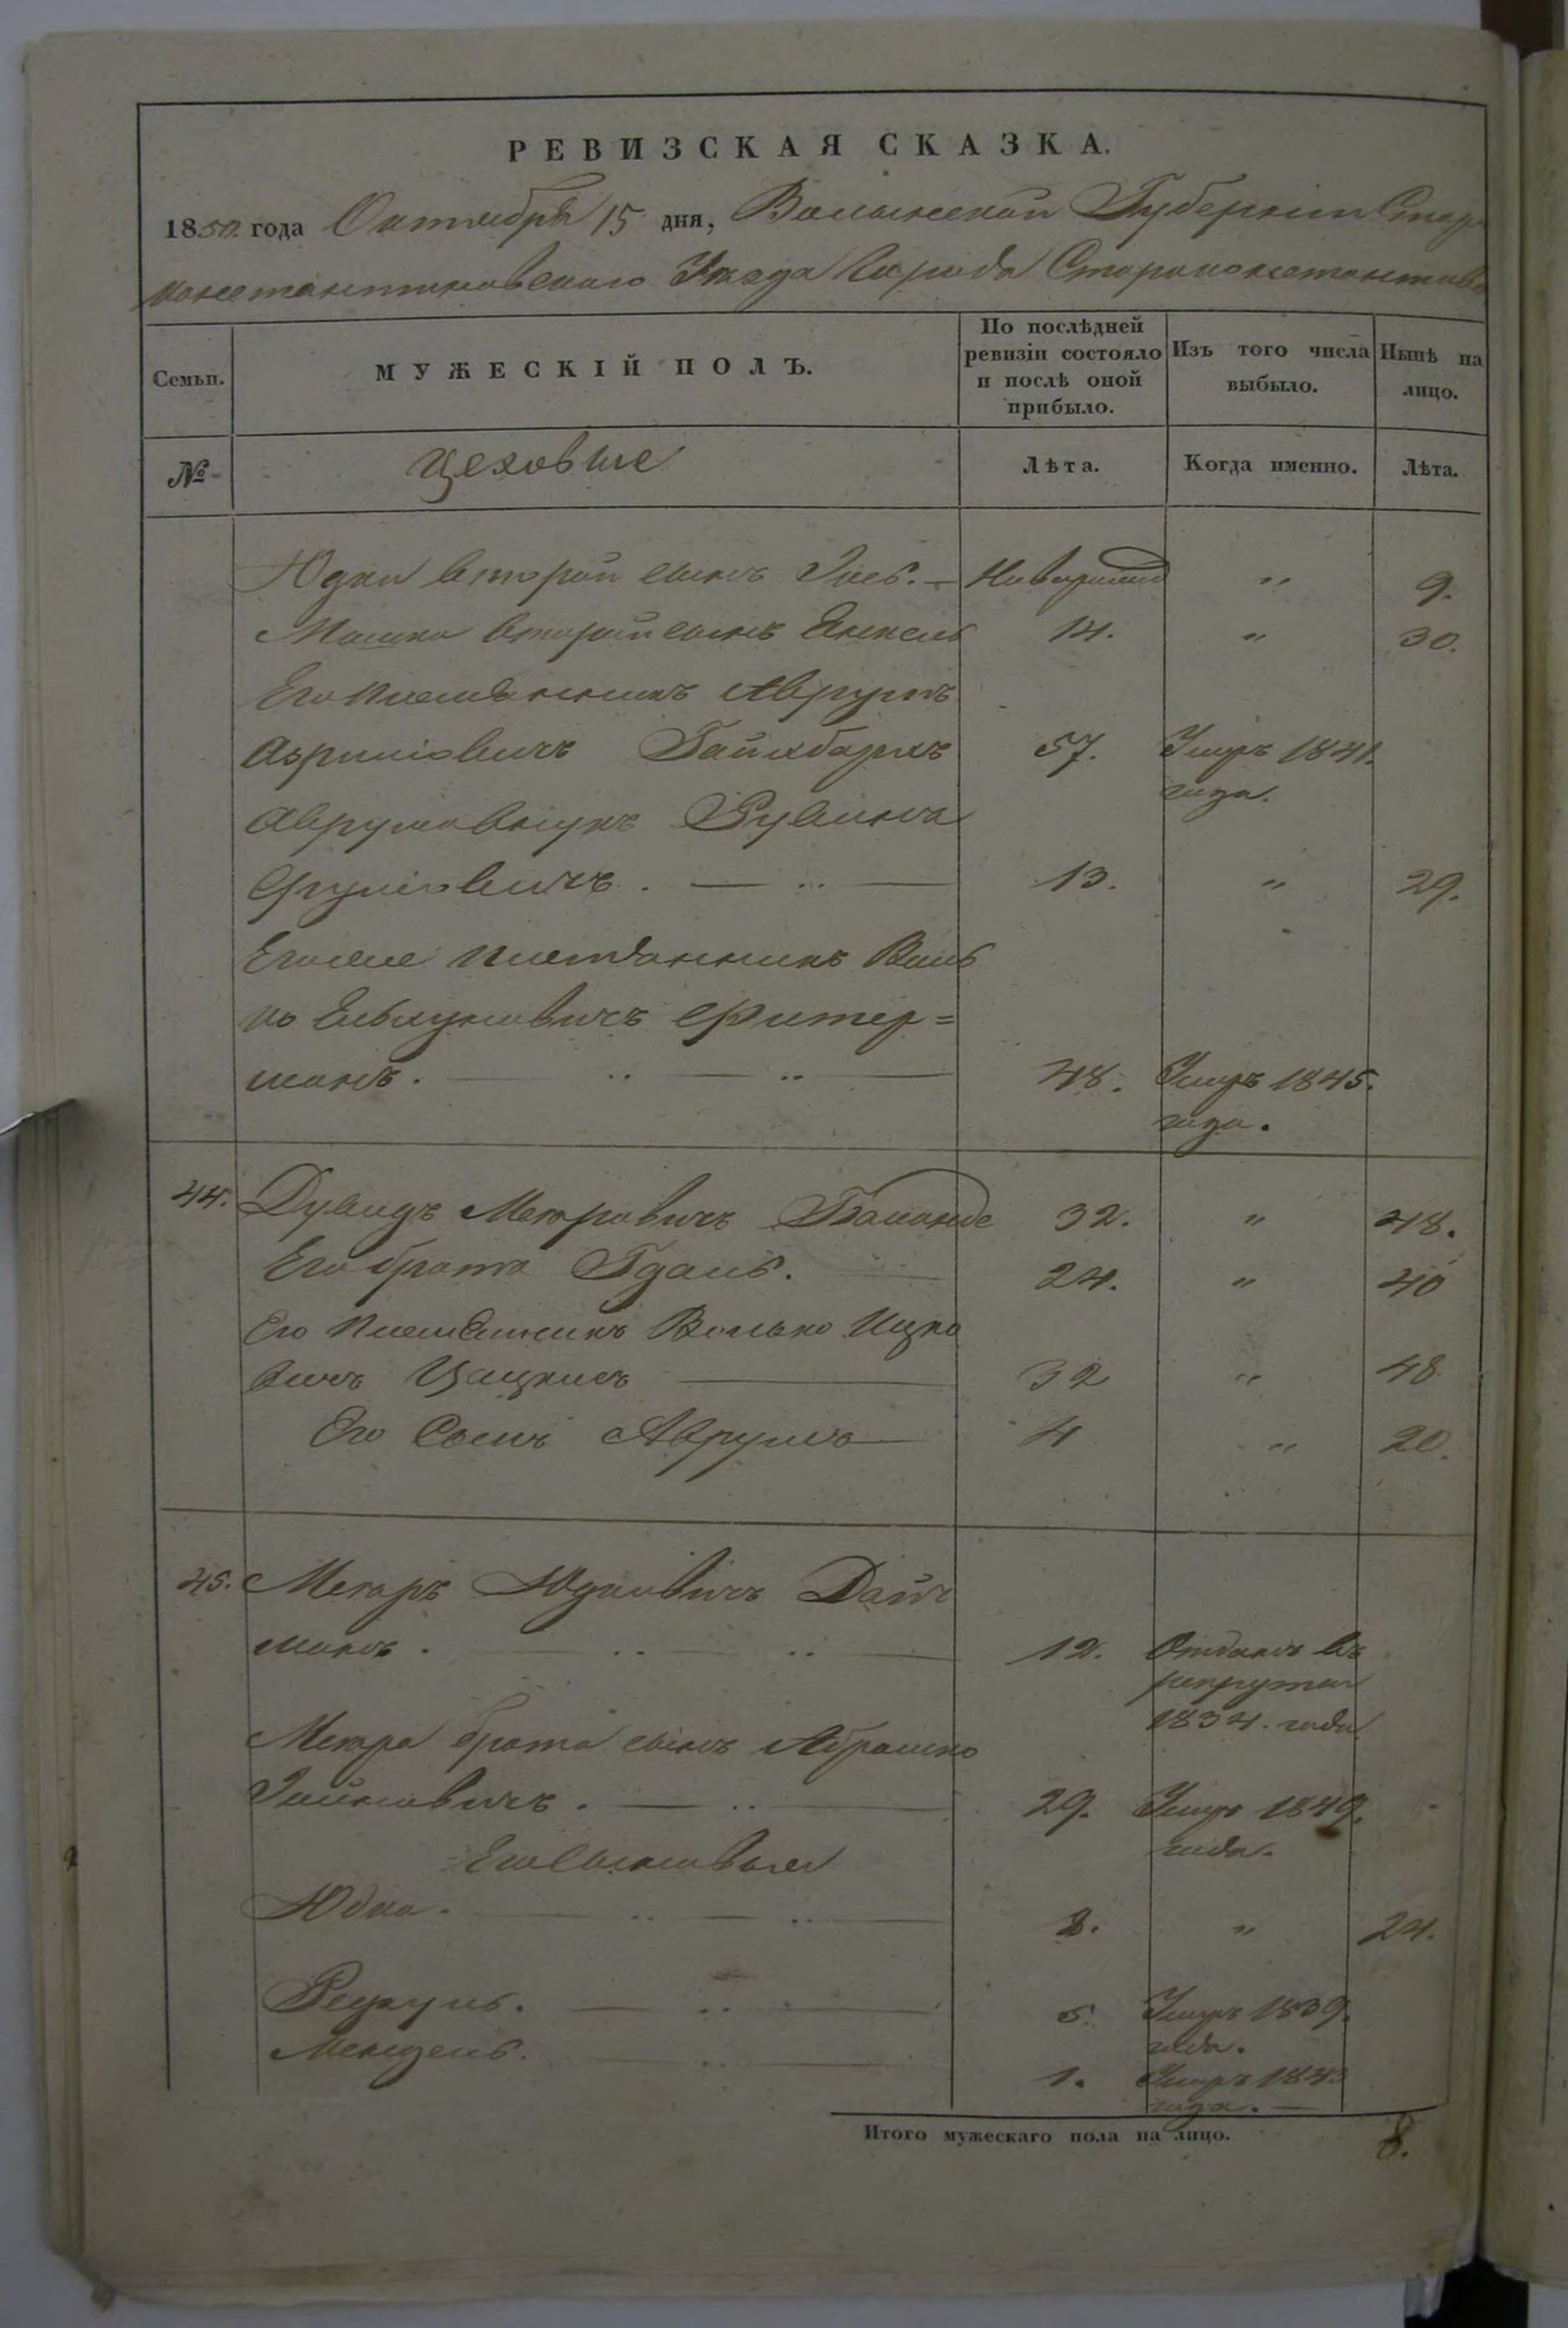 РЕВИЗСКАЯ СКАЗКА.
1850 года Октября 15 дня, Волынской Губернiи Старо
константиновскаго Уезда Города Староконстантинова
Семьи.
МУЖЕСКIЙ ПОЛЪ.
По послѣдней
ревизiи состояло
и послѣ оной
прибыло.
Изъ того числа
выбыло.
Нынѣ на
лицо.
№
Цеховые
Лѣта.
Когда именно.
Лѣта.
Юдки второй сынъ Iось. — " 9.
Мошка второй сынъ 14. " 30.
Его племянникъ Аврумъ
57. Умръ 1841.
года.
Аврума внукъ Рувинъ
13. " 29.
Егоже племянникъ Воль
ко Фитер=
манъ. 48. Умръ 1845.
года.
44. Дувидъ Меировичъ 32. " 48.
Его братъ Гдаль. 24. " 40
Его племянникъ Волько Ицко
вичъ 32 " 48
Его Сынъ Аврумъ 4 " 20.
45. Меиръ Юдковичъ Дайч
манъ. 12. Отданъ въ
рекруты
1834. года
Меира брата сынъ Абрамко
29. Умръ 1849.
года.
Его Сыновья
Юдко. 8. " 24.
5. Умръ 1839.
года.
Мендель. 1. Умръ 1843
года. —
Итого мужескаго пола на лицо. 8.